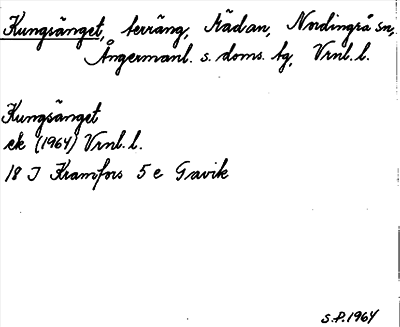 Kungsänget, terräng, Rädan, Nordingrå sn,
Ångermanl. s. doms. tg, Vrnl. l.
Kungsänget
ek (1964) Vrnl. l.
18 J Kramfors 5 e Gavik
S.P. 1964